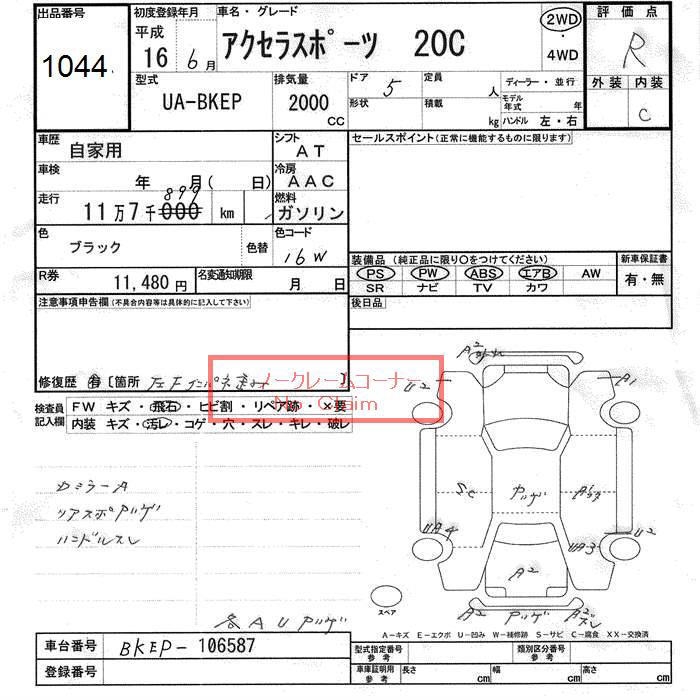 出品番号 1044
初度登録年月 平成 16 6月
車名・グレード アクセラスポーツ 20C
2WD・4WD
評価点 R
外装 内装 C
型式 UA-BKEP
排気量 2000 CC
ドア 5
形状
定員 人
積載 kg
ディーラー・並行
モデル年式 年
ハンドル 左・右
車歴 自家用
シフト AT
セールスポイント(正常に機能するものに限ります)
車検 年 月( 日)
冷房 AAC
走行 11万7千000 899 km
燃料 ガソリン
色 ブラック 色替
色コード 16W
装備品(純正品に限り○をつけてください)
新車保証書
PS PW ABS エアB AW
SR ナビ TV カワ
有・無
R券 11,480円
名変通知期限 月 日
後日品
注意事項申告欄(不具合内容等は具体的に記入して下さい)
修復歴 有 [箇所 左Fインパネ歪み]
ノークレームコーナー
No Claim
検査員記入欄
FW キズ・飛石・ヒビ割・リペア跡・×要
内装 キズ・汚レ・コゲ・穴・スレ・キレ・破レ
カミラーA
リアスポAハゲ
ハンドルスレ
各AUハゲ
A2
U2
A1
SC
ハゲ
UA4
U2
UA3
A2
A2
ハゲ
A2
スペア
A-キズ E-エクボ U-凹み W-補修跡 S-サビ C-腐食 XX-交換済
車台番号 BKEP-106587
型式指定番号 参考
類別区分番号 参考
登録番号
車庫証明用 参考
長さ cm
幅 cm
高さ cm